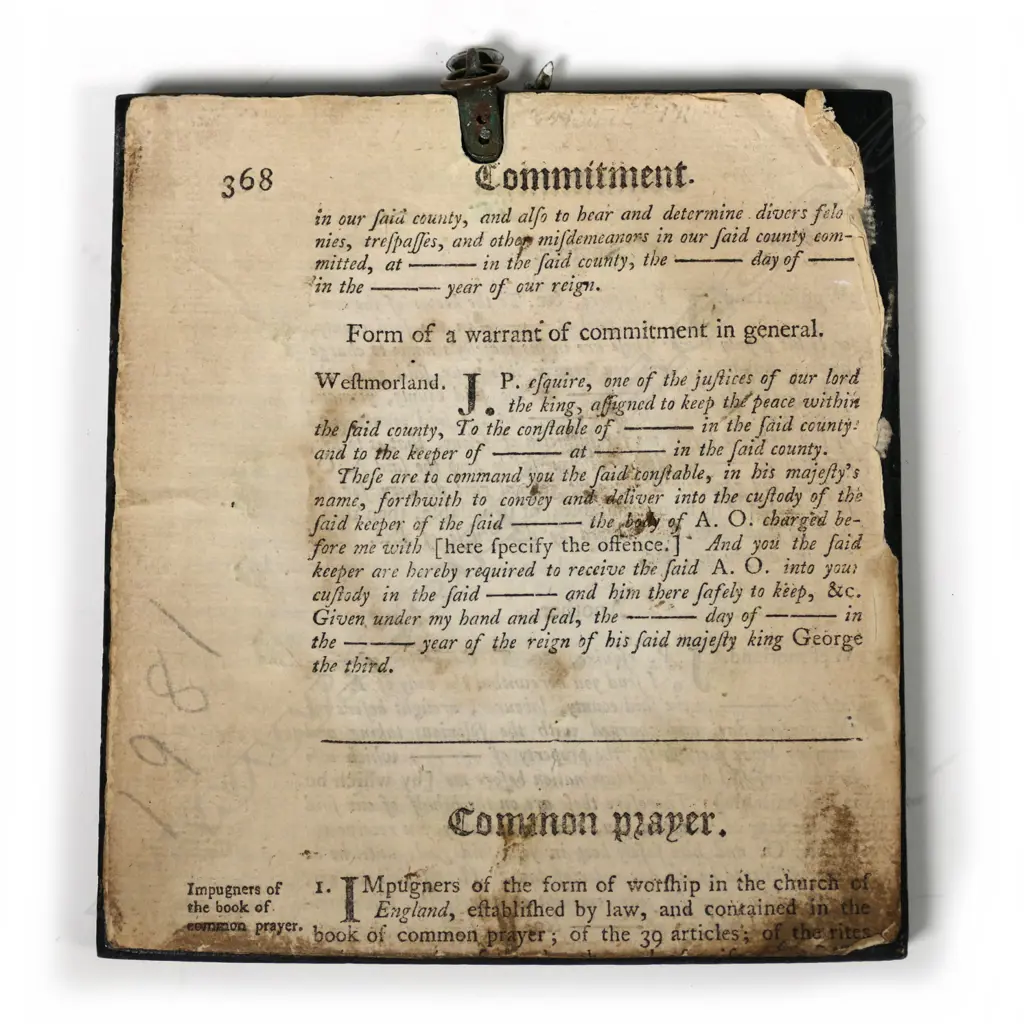 368
Commitment.
in our ſaid county, and alſo to hear and determine divers felo
nies, treſpaſſes, and other miſdemeanors in our ſaid county com-
mitted, at ——— in the ſaid county, the ——— day of ———
in the ——— year of our reign.
Form of a warrant of commitment in general.
Weſtmorland. J. P. eſquire, one of the juſtices of our lord
the king, aſſigned to keep the peace within
the ſaid county, To the conſtable of ——— in the ſaid county:
and to the keeper of ——— at ——— in the ſaid county.
Theſe are to command you the ſaid conſtable, in his majeſty's
name, forthwith to convey and deliver into the cuſtody of the
ſaid keeper of the ſaid ——— the body of A. O. charged be-
fore me with [here ſpecify the offence.] And you the ſaid
keeper are hereby required to receive the ſaid A. O. into your
cuſtody in the ſaid ——— and him there ſafely to keep, &c.
Given under my hand and ſeal, the ——— day of ——— in
the ——— year of the reign of his ſaid majeſty king George
the third.
1981
Common prayer.
Impugners of
the book of
common prayer.
1. IMpugners of the form of worſhip in the church of
England, eſtabliſhed by law, and contained in the
book of common prayer; of the 39 articles; of the rites